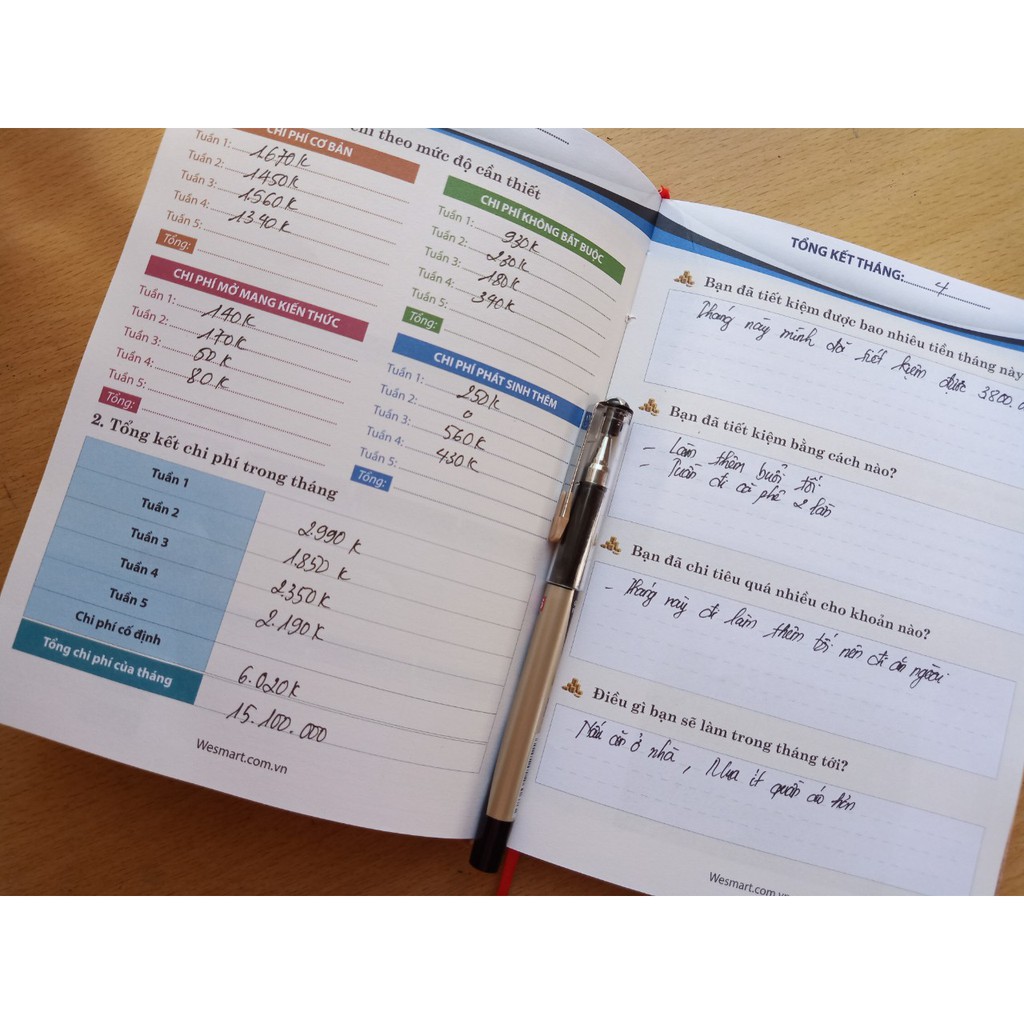 chi theo mức độ cần thiết
CHI PHÍ CƠ BẢN
Tuần 1: 1.670K
Tuần 2: 1450K
Tuần 3: 1.560K
Tuần 4: 1340K
Tuần 5:
Tổng:
CHI PHÍ KHÔNG BẮT BUỘC
Tuần 1: 930K
Tuần 2: 230K
Tuần 3: 180K
Tuần 4: 390K
Tuần 5:
Tổng:
CHI PHÍ MỞ MANG KIẾN THỨC
Tuần 1: 140K
Tuần 2: 170K
Tuần 3: 60K
Tuần 4: 80K
Tuần 5:
Tổng:
CHI PHÍ PHÁT SINH THÊM
Tuần 1: 250K
Tuần 2: 0
Tuần 3: 560K
Tuần 4: 430K
Tuần 5:
Tổng:
2. Tổng kết chi phí trong tháng
Tuần 1 2.990K
Tuần 2 1.850K
Tuần 3 2.350K
Tuần 4 2.190K
Tuần 5
Chi phí cố định 6.020K
Tổng chi phí của tháng 15.100.000
Wesmart.com.vn
TỔNG KẾT THÁNG: 4
Bạn đã tiết kiệm được bao nhiêu tiền tháng này
Tháng này mình đã tiết kiệm được 3800.0
Bạn đã tiết kiệm bằng cách nào?
- Làm thêm buổi tối
- Tuần đi cà phê 2 lần
Bạn đã chi tiêu quá nhiều cho khoản nào?
- Tháng này đi làm thêm tối nên đi ăn ngoài.
Điều gì bạn sẽ làm trong tháng tới?
Nấu ăn ở nhà, Mua ít quần áo hơn
Wesmart.com.vn